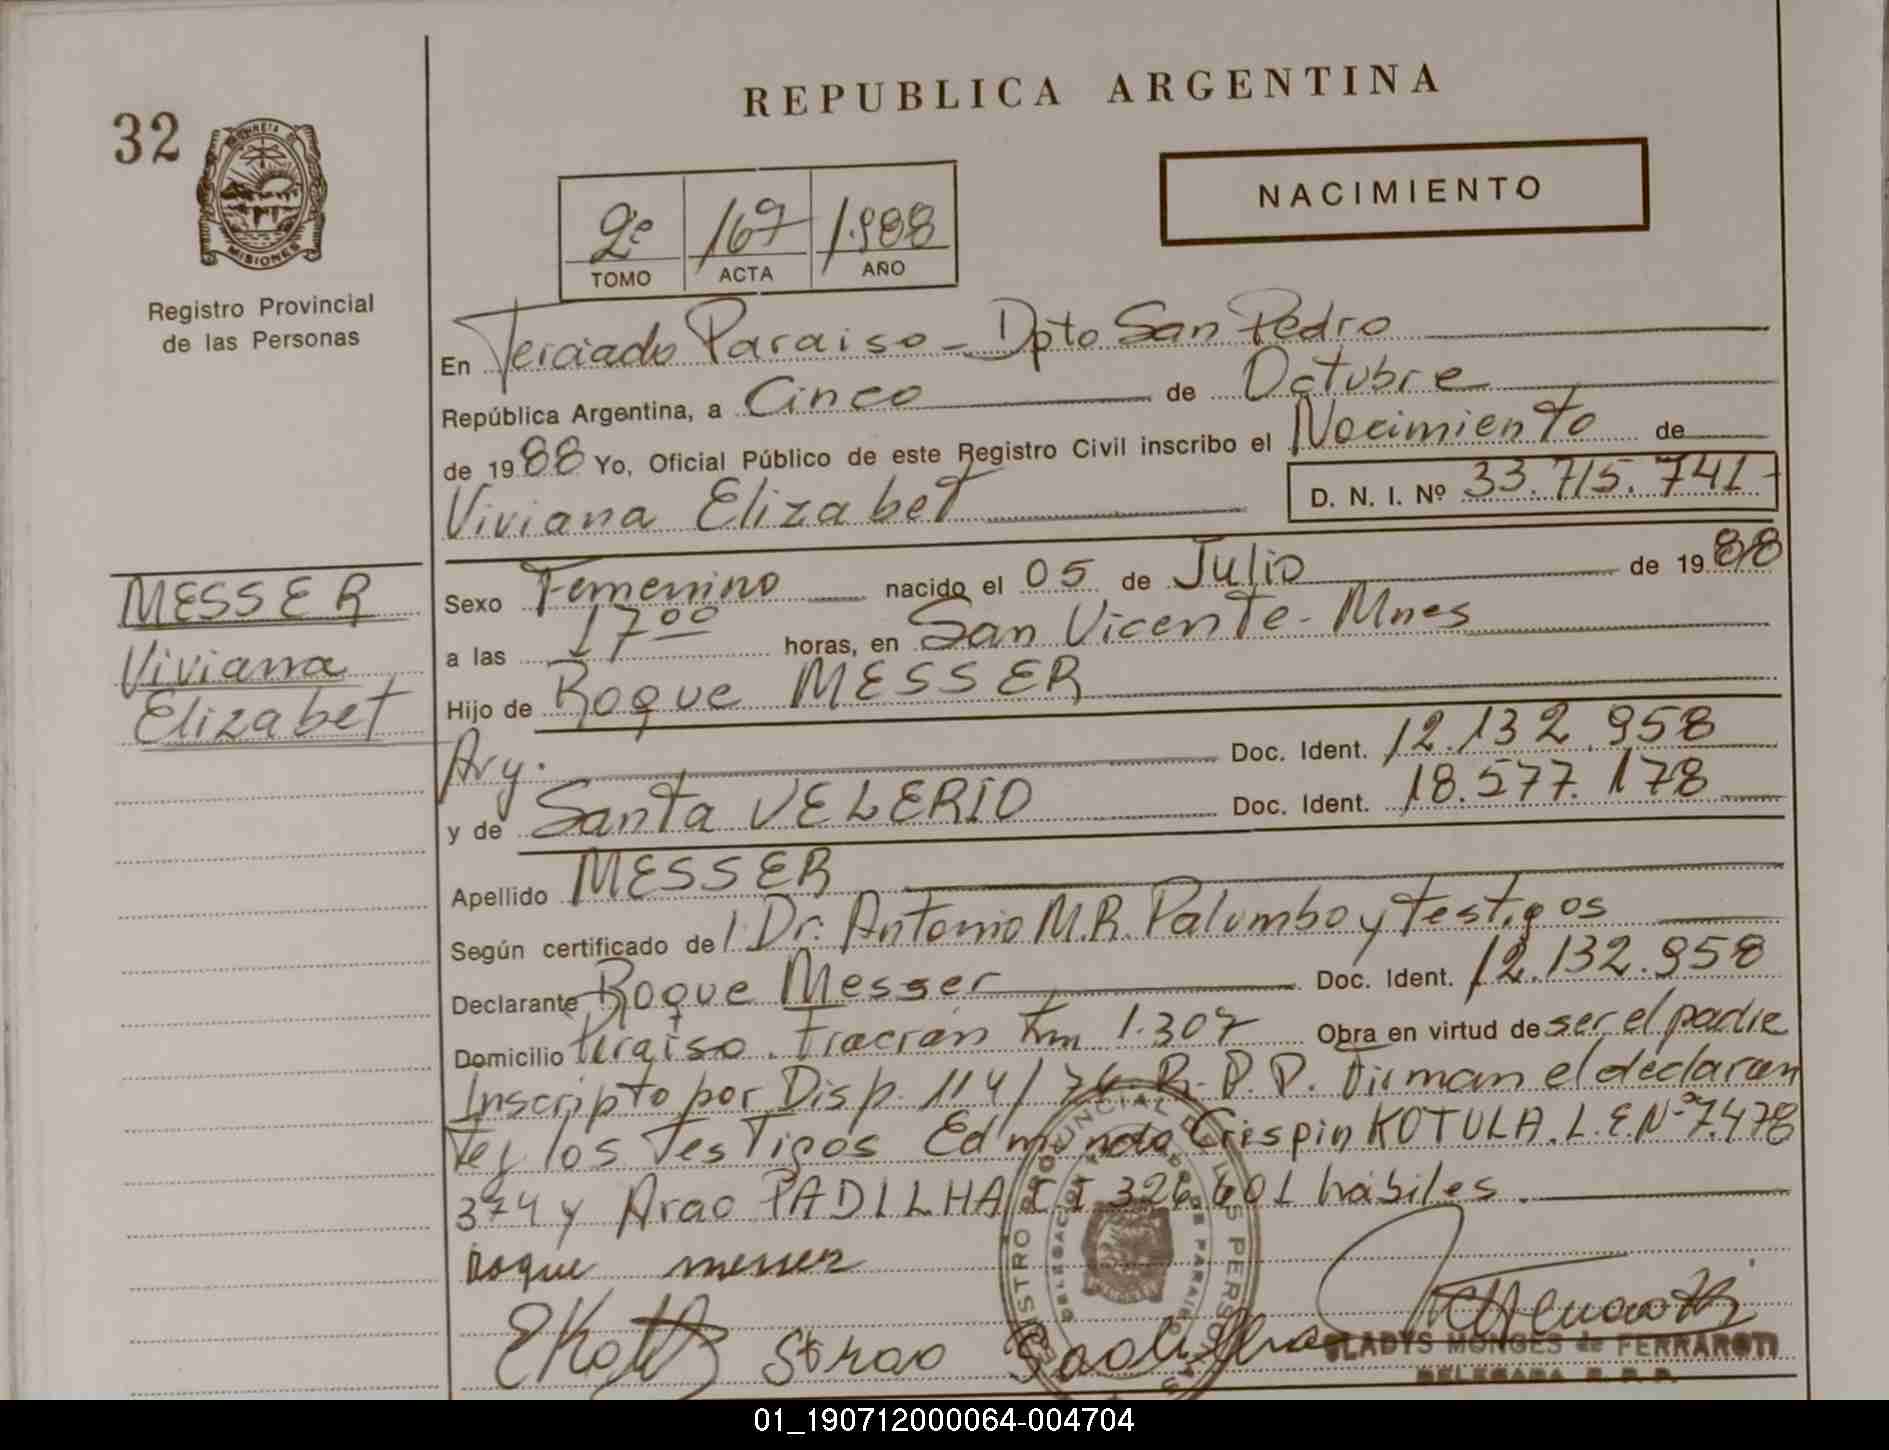 REPUBLICA ARGENTINA
32
NACIMIENTO
MISIONES
2º 167 1.988
TOMO ACTA AÑO
Registro Provincial
de las Personas
En Terciado Paraiso - Dpto San Pedro
República Argentina, a Cinco de Octubre
de 1988 Yo, Oficial Público de este Registro Civil inscribo el Nacimiento de
Viviana Elizabet D. N. I. Nº 33.715.741-
MESSER
Viviana
Elizabet
Sexo Femenino nacido el 05 de Julio de 1988
a las 17 00 horas, en San Vicente - Mnes
Hijo de Roque MESSER
Arg. Doc. Ident. 12.132.958
y de Santa VELERIO Doc. Ident. 18.577.178
Apellido MESSER
Según certificado del Dr. Antonio M.R. Palumbo y testigos
Declarante Roque Messer Doc. Ident. 12.132.958
Domicilio Peraiso. Fracrán Km 1.307 Obra en virtud de ser el padre
Inscripto por Disp. 114/76 R.P.P. Firman el declaran
te y los Testigos Edmundo Crispin KOTULA. L.E Nº 7.478
374 y Arao PADILHA CI 326.601 habiles.
Roque messer
GLADYS MONGES de FERRAROTI
DELEGADA R. P. P.
01_190712000064-004704